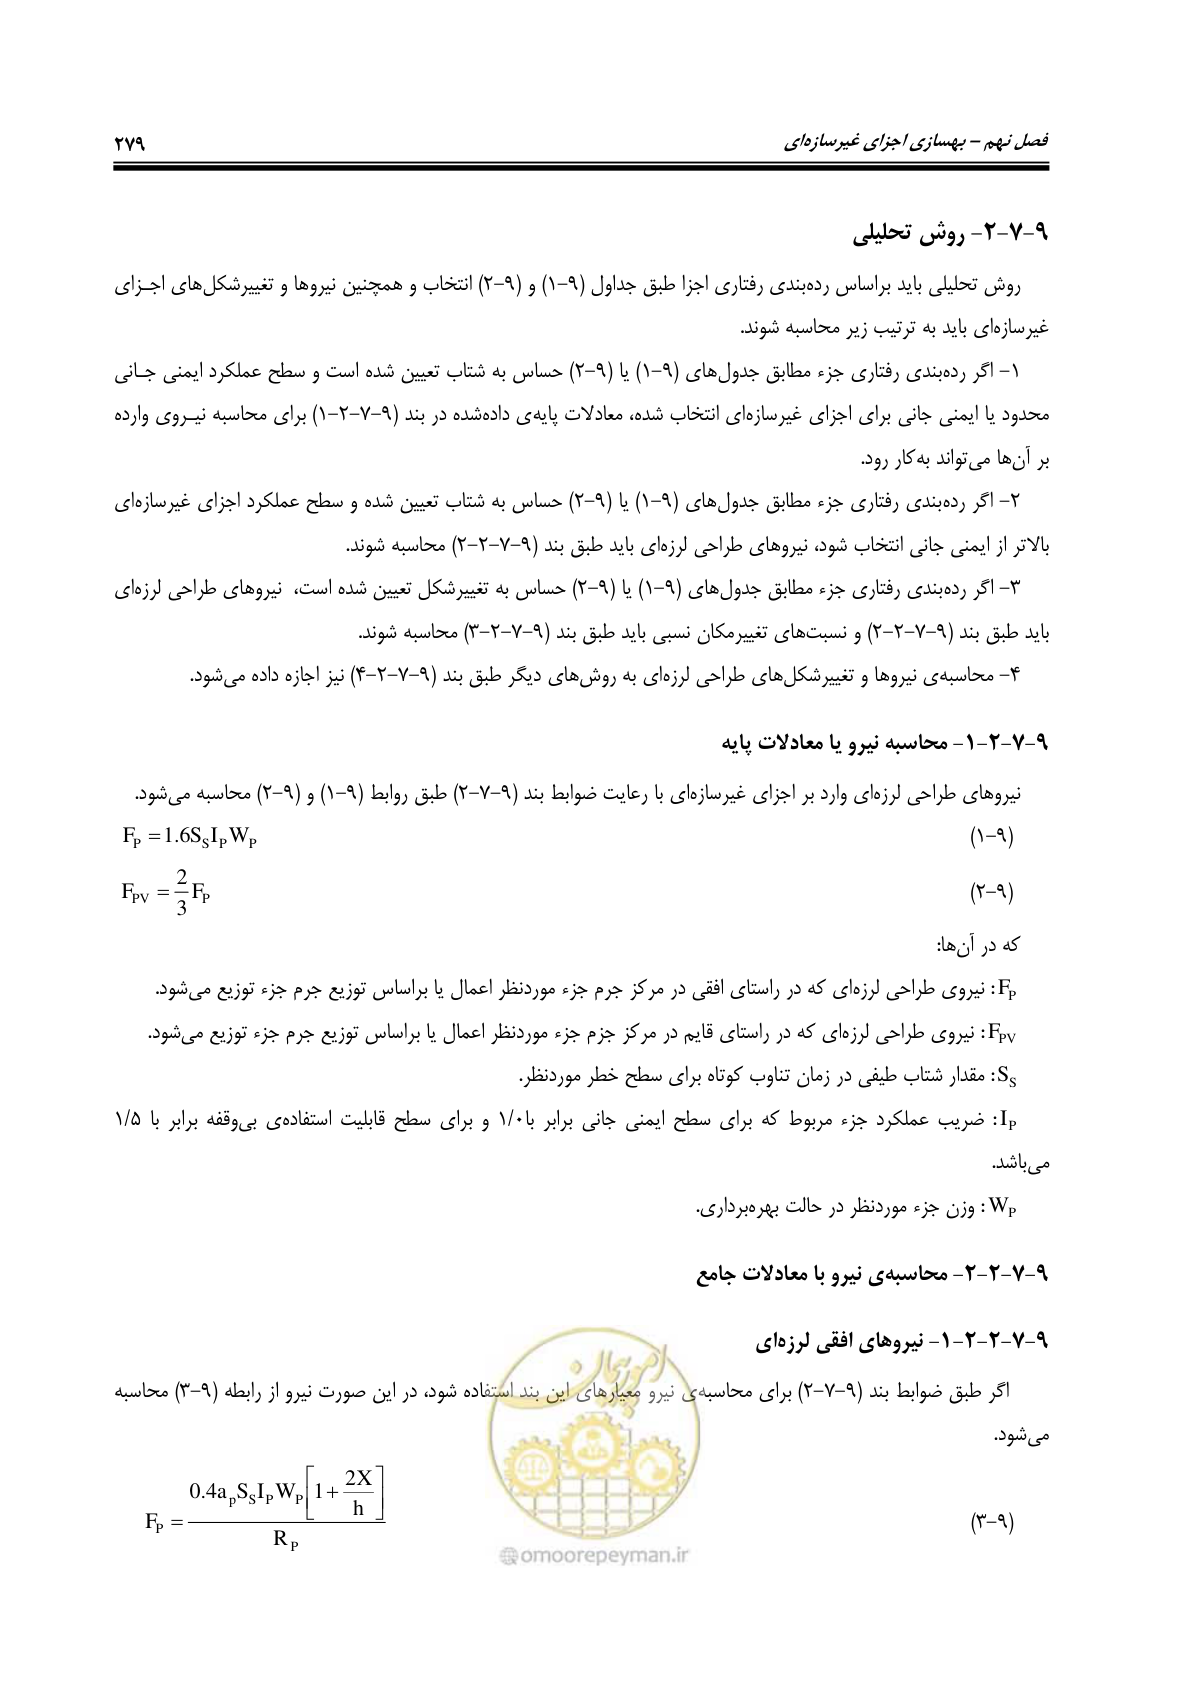 فصل نهم – بهسازی اجزای غیرسازه‌ای ۲۷۹
۹-۷-۲- روش تحلیلی
روش تحلیلی باید براساس رده‌بندی رفتاری اجزا طبق جداول (۹-۱) و (۹-۲) انتخاب و همچنین نیروها و تغییرشکل‌های اجـزای
غیرسازه‌ای باید به ترتیب زیر محاسبه شوند.
۱- اگر رده‌بندی رفتاری جزء مطابق جدول‌های (۹-۱) یا (۹-۲) حساس به شتاب تعیین شده است و سطح عملکرد ایمنی جـانی
محدود یا ایمنی جانی برای اجزای غیرسازه‌ای انتخاب شده، معادلات پایه‌ی داده‌شده در بند (۹-۷-۲-۱) برای محاسبه نیـروی وارده
بر آن‌ها می‌تواند به‌کار رود.
۲- اگر رده‌بندی رفتاری جزء مطابق جدول‌های (۹-۱) یا (۹-۲) حساس به شتاب تعیین شده و سطح عملکرد اجزای غیرسازه‌ای
بالاتر از ایمنی جانی انتخاب شود، نیروهای طراحی لرزه‌ای باید طبق بند (۹-۷-۲-۲) محاسبه شوند.
۳- اگر رده‌بندی رفتاری جزء مطابق جدول‌های (۹-۱) یا (۹-۲) حساس به تغییرشکل تعیین شده است، نیروهای طراحی لرزه‌ای
باید طبق بند (۹-۷-۲-۲) و نسبت‌های تغییرمکان نسبی باید طبق بند (۹-۷-۲-۳) محاسبه شوند.
۴- محاسبه‌ی نیروها و تغییرشکل‌های طراحی لرزه‌ای به روش‌های دیگر طبق بند (۹-۷-۲-۴) نیز اجازه داده می‌شود.
۹-۷-۲-۱- محاسبه نیرو یا معادلات پایه
نیروهای طراحی لرزه‌ای وارد بر اجزای غیرسازه‌ای با رعایت ضوابط بند (۹-۷-۲) طبق روابط (۹-۱) و (۹-۲) محاسبه می‌شود.
(۹-۱) F_P = 1.6S_S I_P W_P
(۹-۲) F_PV = 2/3 F_P
که در آن‌ها:
F_P: نیروی طراحی لرزه‌ای که در راستای افقی در مرکز جرم جزء موردنظر اعمال یا براساس توزیع جرم جزء توزیع می‌شود.
F_PV: نیروی طراحی لرزه‌ای که در راستای قایم در مرکز جزم جزء موردنظر اعمال یا براساس توزیع جرم جزء توزیع می‌شود.
S_S: مقدار شتاب طیفی در زمان تناوب کوتاه برای سطح خطر موردنظر.
I_P: ضریب عملکرد جزء مربوط که برای سطح ایمنی جانی برابر با۱/۰ و برای سطح قابلیت استفاده‌ی بی‌وقفه برابر با ۱/۵
می‌باشد.
W_P: وزن جزء موردنظر در حالت بهره‌برداری.
۹-۷-۲-۲- محاسبه‌ی نیرو با معادلات جامع
۹-۷-۲-۲-۱- نیروهای افقی لرزه‌ای
اگر طبق ضوابط بند (۹-۷-۲) برای محاسبه‌ی نیرو معیارهای این بند استفاده شود، در این صورت نیرو از رابطه (۹-۳) محاسبه
می‌شود.
(۹-۳) F_P = 0.4a_p S_S I_P W_P [1 + 2X/h] / R_P
امور پیمان
@omoorepeyman.ir